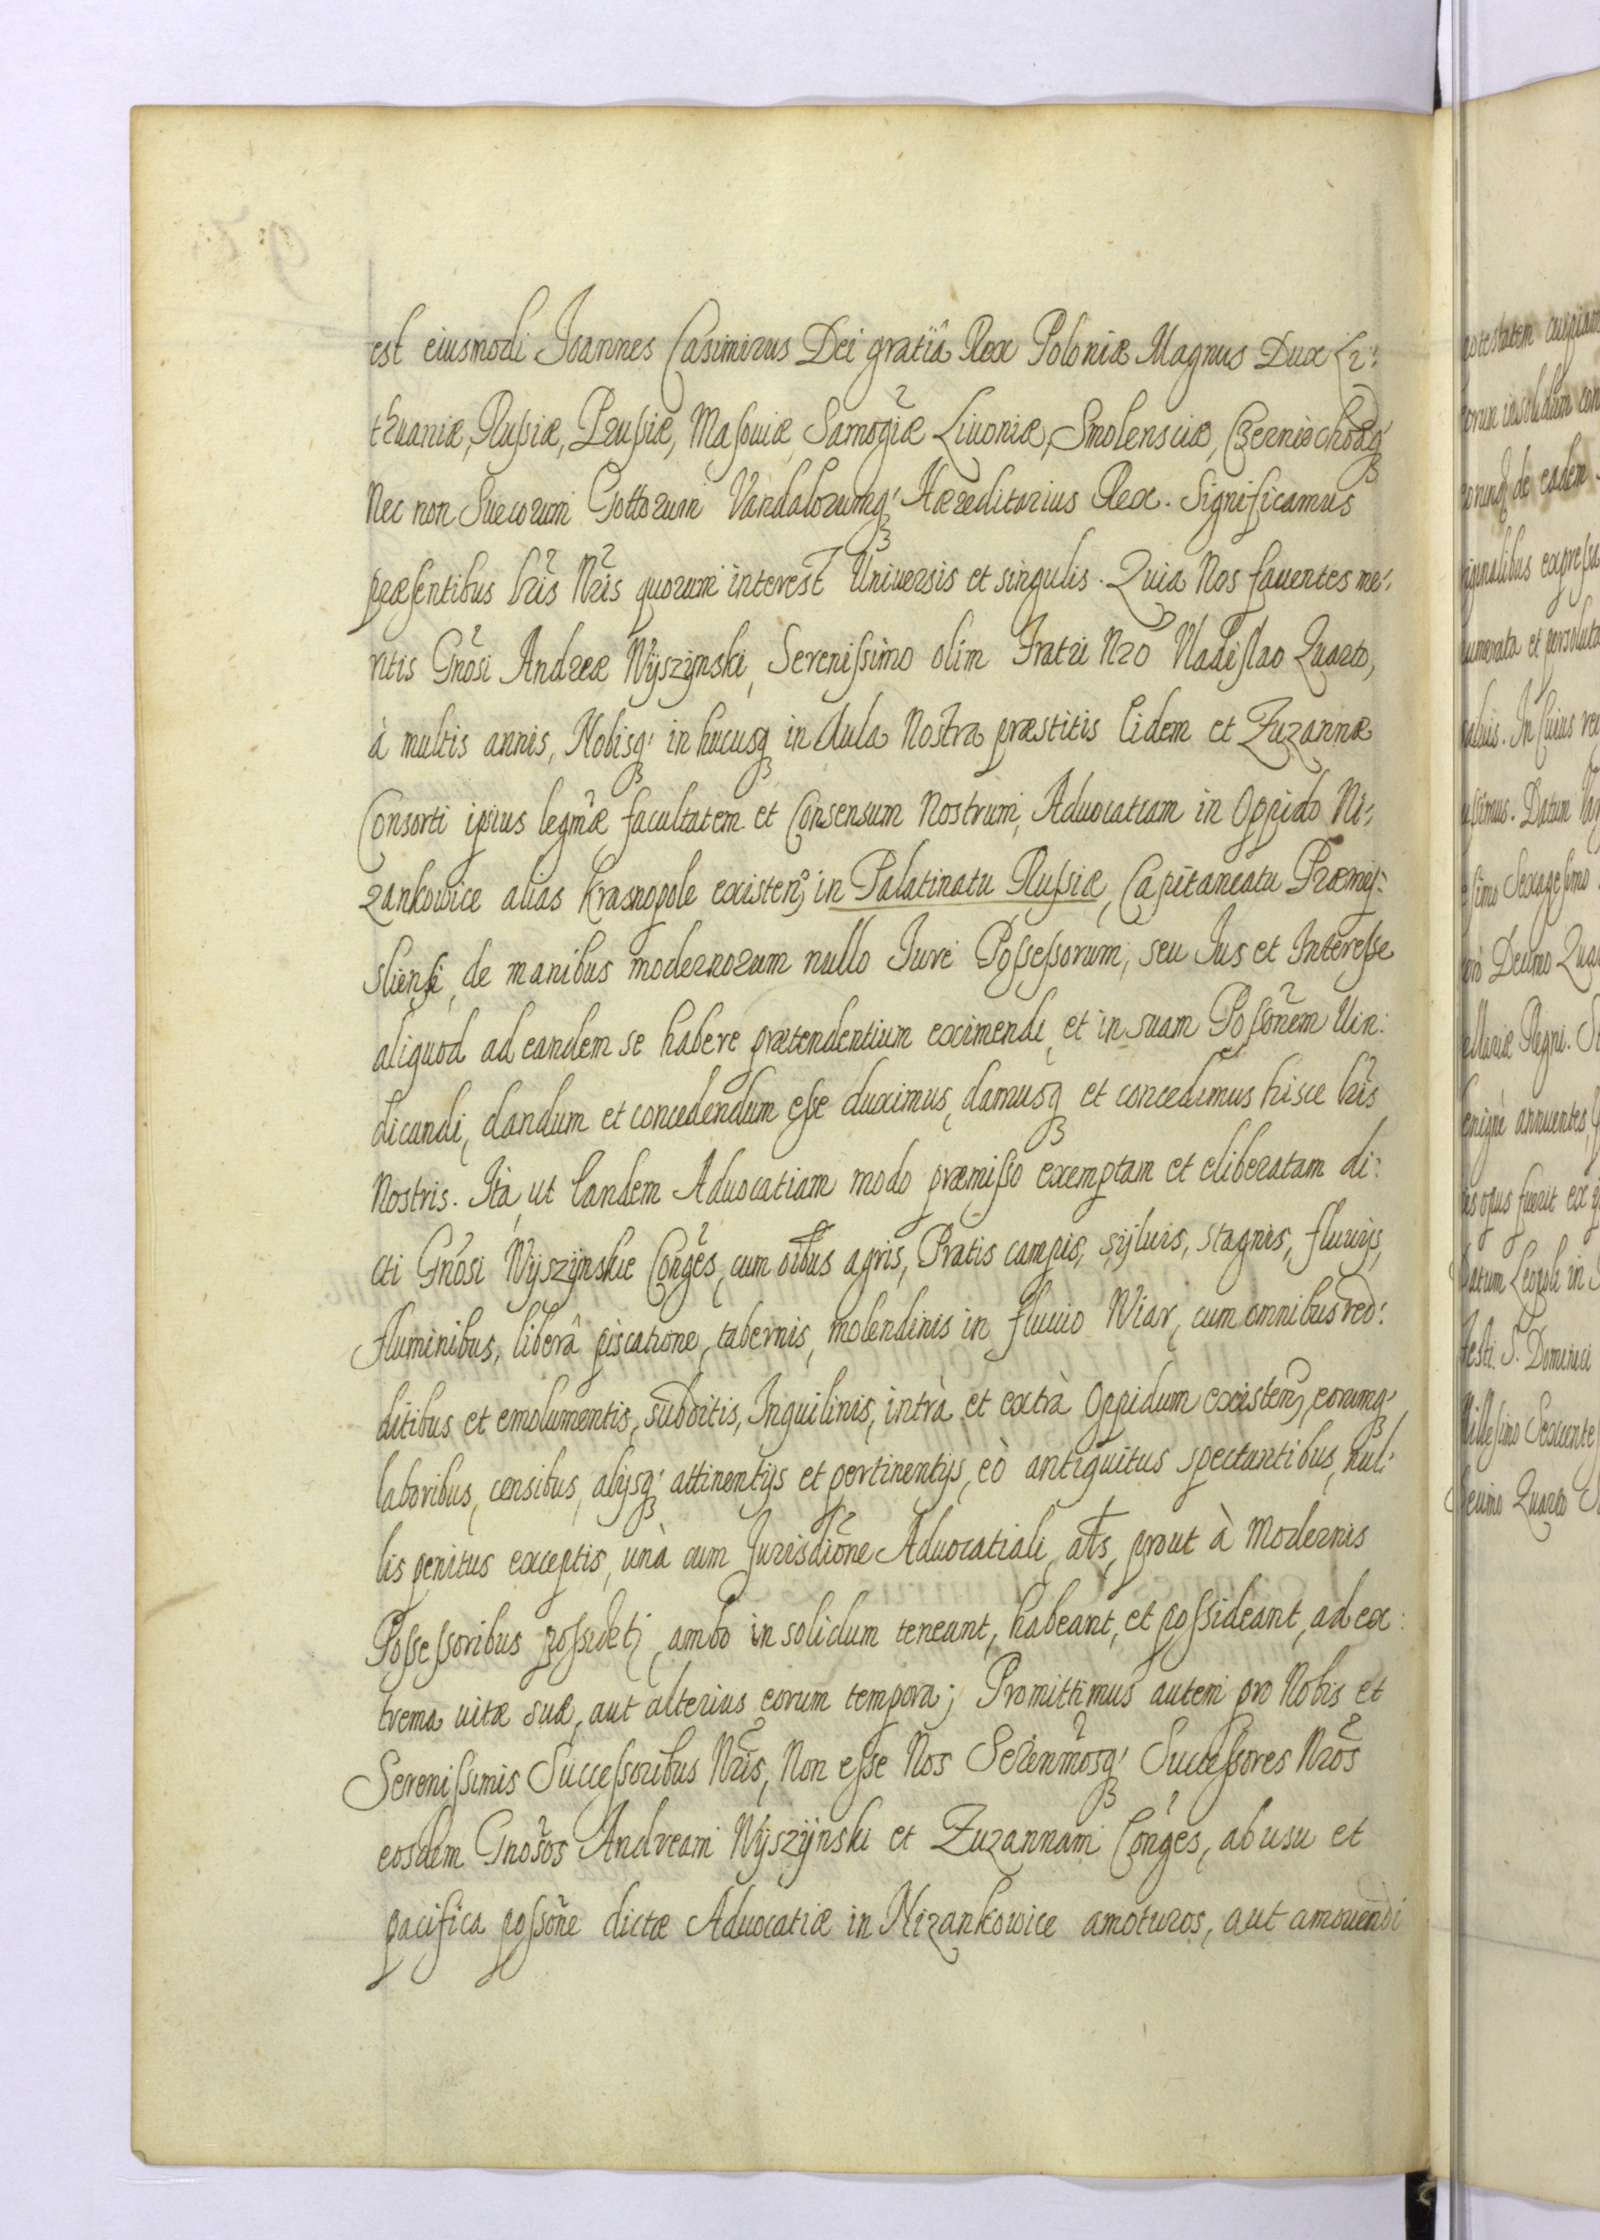 est eiusmodi Joannes Casimirus Dei gratiâ Rex Poloniæ Magnus Dux Li:
thuaniæ, Russiæ, Prussiæ, Masouiæ Samogiæ Liuoniæ, Smolensciæ, Czerniechoræq
Nec non Suecorum Gottorum Vandalorumq' Hæreditarius Rex. Significamus
præsentibus lris Nris quorum interest Uniuersis et singulis. Quia Nos fauentes me:
ritis Gnosi Andreæ Wyszynski, Serenissimo olim Fratri Nro Vladislao Quarto,
à multis annis, Nobisq' in hucusq in Aula Nostra præstitis Eidem et Zuzannæ
Consorti ipsius legmæ facultatem et Consensum Nostrum, Aduocatiam in Oppido Ni:
zankowice alias Krasnopole existen, in Palatinatu Russiæ, Capitaneatu Præmy:
sliensi, de manibus modernorum nullo Jure Possessorum, seu Jus et Interesse
aliquod ad eandem se habere prætendentium eximendi, et in suam Possonem Vin:
dicandi, dandum et concedendum esse duximus, damusq et concedimus hisce lris
Nostris. Ità, ut Eandem Aduocatiam modo præmisso exemptam et eliberatam di:
cti Gnosi Wyszynskie Conges, cum oibus agris, Pratis campis, syluis, stagnis, fluuijs,
Fluminibus, liberâ piscatione, tabernis, molendinis in fluuio Wiar, cum omnibus red:
ditibus et emolumentis, subditis, Inquilinis, intrà et extrà Oppidum existen, eorumq'
laboribus, censibus, alijsq' attinentijs et pertinentijs, eò antiquitus spectantibus, nul:
lis penitus exceptis, unà cum Jurisdione Aduocatiali, ats, prout à Modernis
Possessoribus possidet, ambo in solidum teneant, habeant, et possideant, ad ex:
trema uitæ suæ, aut alterius eorum tempora; Promittimus autem pro Nobis et
Serenissimis Successoribus Nris, Non esse Nos Serenmosq' Successores Nros
eosdem Gnosos Andream Wyszynski et Zuzannam Conges, ab usu et
pacifica possone dictæ Aduocatiæ in Nizankowice amoturos, aut amouendi